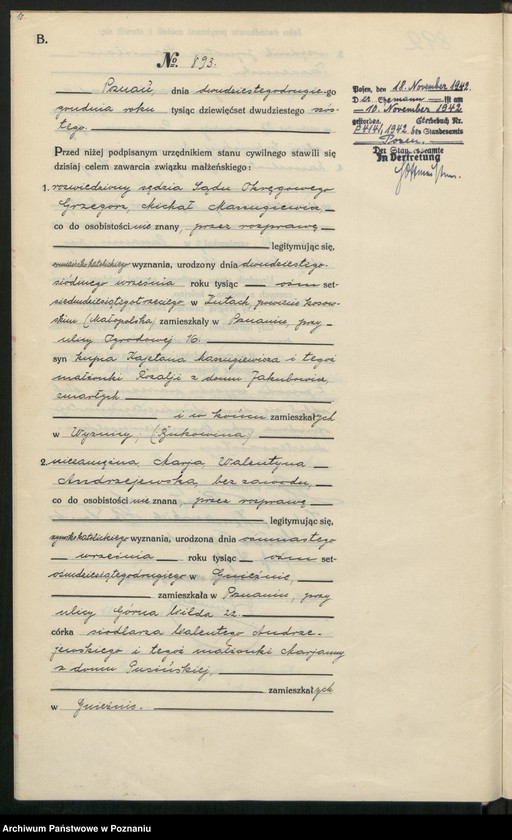 B.
No. 893.
Poznań dnia dwudziestegodrugiego
grudnia roku tysiąc dziewięćset dwudziestego szós-
tego.
Przed niżej podpisanym urzędnikiem stanu cywilnego stawili się
dzisiaj celem zawarcia związku małżeńskiego:
1. rozwiedziony sędzia Sądu Okręgowego
Grzegorz, Michał Manugiewicz,
co do osobistości nie znany, przez rozprawę
legitymując się,
wyznania, urodzony dnia dwudziestego-
siódmego września roku tysiąc ośm set-
siedmdziesiątegotrzeciego w Zutach, powiecie kosow-
skim (Małopolska) zamieszkały w Poznaniu, przy
ulicy Ogrodowej 16.
syn kupca Kajetana Manugiewicza i tegoż
małżonki Rozalji z domu Jakubowicz,
zmarłych
i w końcu zamieszkałych
w Wyżnicy, (Bukowina)
2. niezamężna Marja Walentyna
Andrzejewska, bez zawodu,
co do osobistości nie znana, przez rozprawę
legitymując się,
rzymskokatolickiego wyznania, urodzona dnia ósmnastego
września roku tysiąc ośm set-
ośmdziesiątegodrugiego w Gnieźnie,
zamieszkała w Poznaniu, przy
ulicy Górna Wilda 22.
córka siodlarza Walentego Andrze-
jewskiego i tegoż małżonki Marjanny
z domu Pusińskiej,
zamieszkałych
w Gnieźnie.
Posen, den 18. November 1942.
D. ist am
10. November 1942
gestorben. Sterbebuch Nr.
1942 des Standesamts
Posen.
Der Standesbeamte
In Vertretung
Archiwum Państwowe w Poznaniu